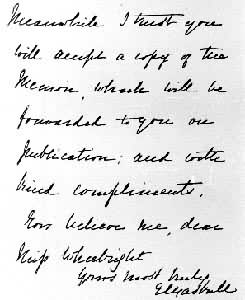 Meanwhile I trust you
will accept a copy of the
Memoir, which will be
forwarded to you on
publication; and with
kind compliments,
believe me, dear
Miss Wheelwright
Yours most truly